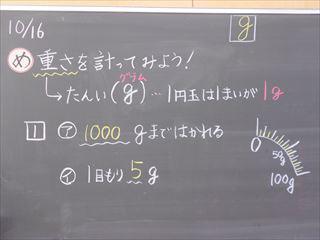 10/16
g
め 重さを計ってみよう!
グラム
↳たんい(g)…1円玉は1まいが1g
1 ㋐ 1000gまではかれる
㋑ 1目もり5g
0
50g
100g